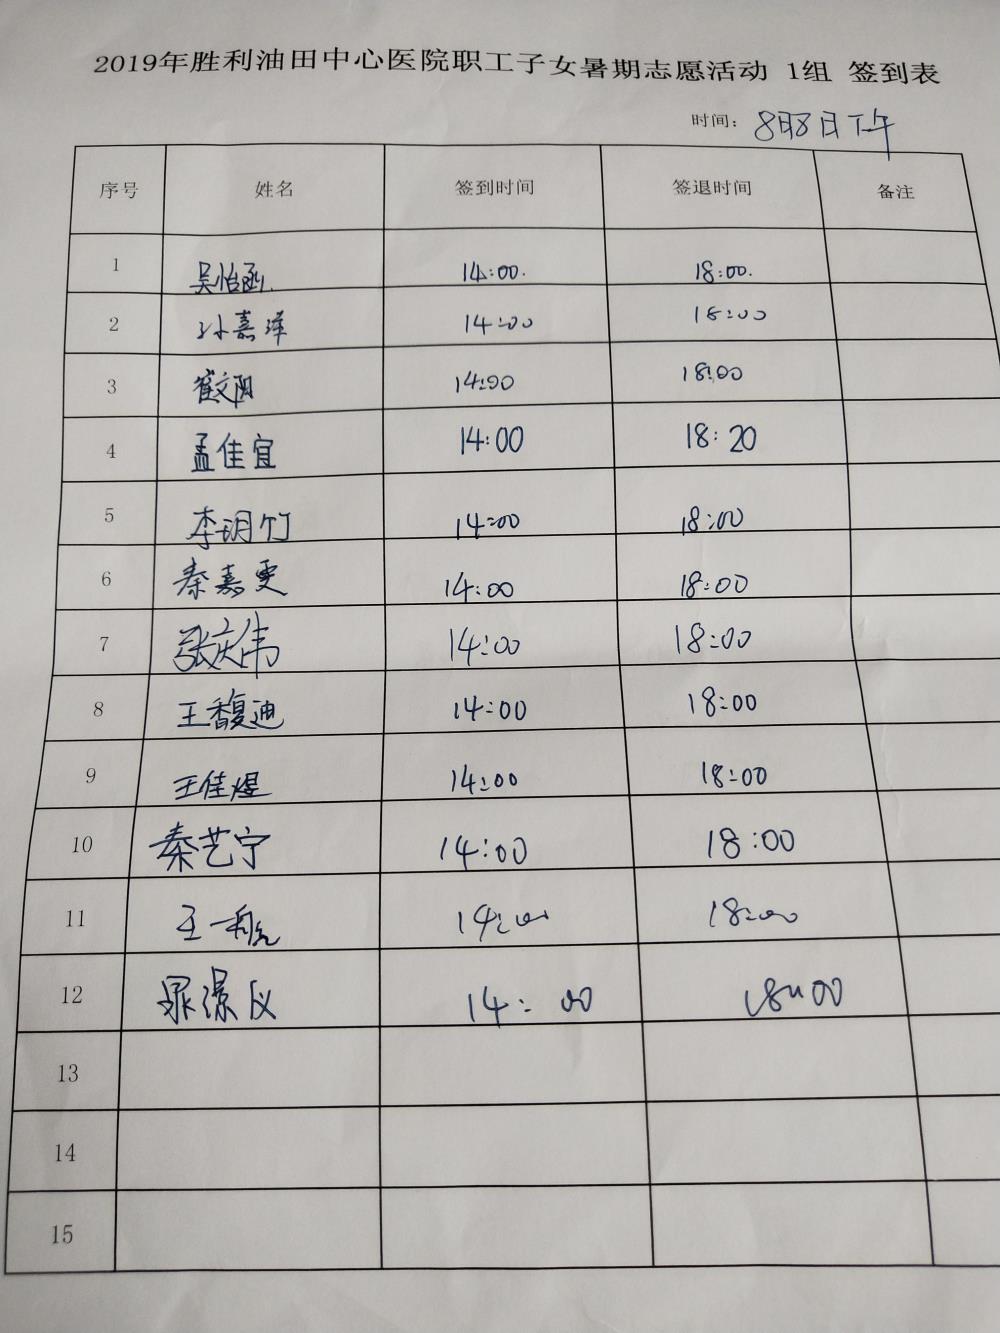 2019年胜利油田中心医院职工子女暑期志愿活动 1组 签到表
时间：8月8日下午
序号 姓名 签到时间 签退时间 备注
1 吴怡函 14:00 18:00
2 孙嘉泽 14:00 18:00
3 崔文阳 14:00 18:00
4 孟佳宜 14:00 18:20
5 李玥竹 14:00 18:00
6 秦嘉雯 14:00 18:00
7 张庆伟 14:00 18:00
8 王馥迪 14:00 18:00
9 王佳煜 14:00 18:00
10 秦艺宁 14:00 18:00
11 王一 14:00 18:00
12 14:00 18:00
13
14
15